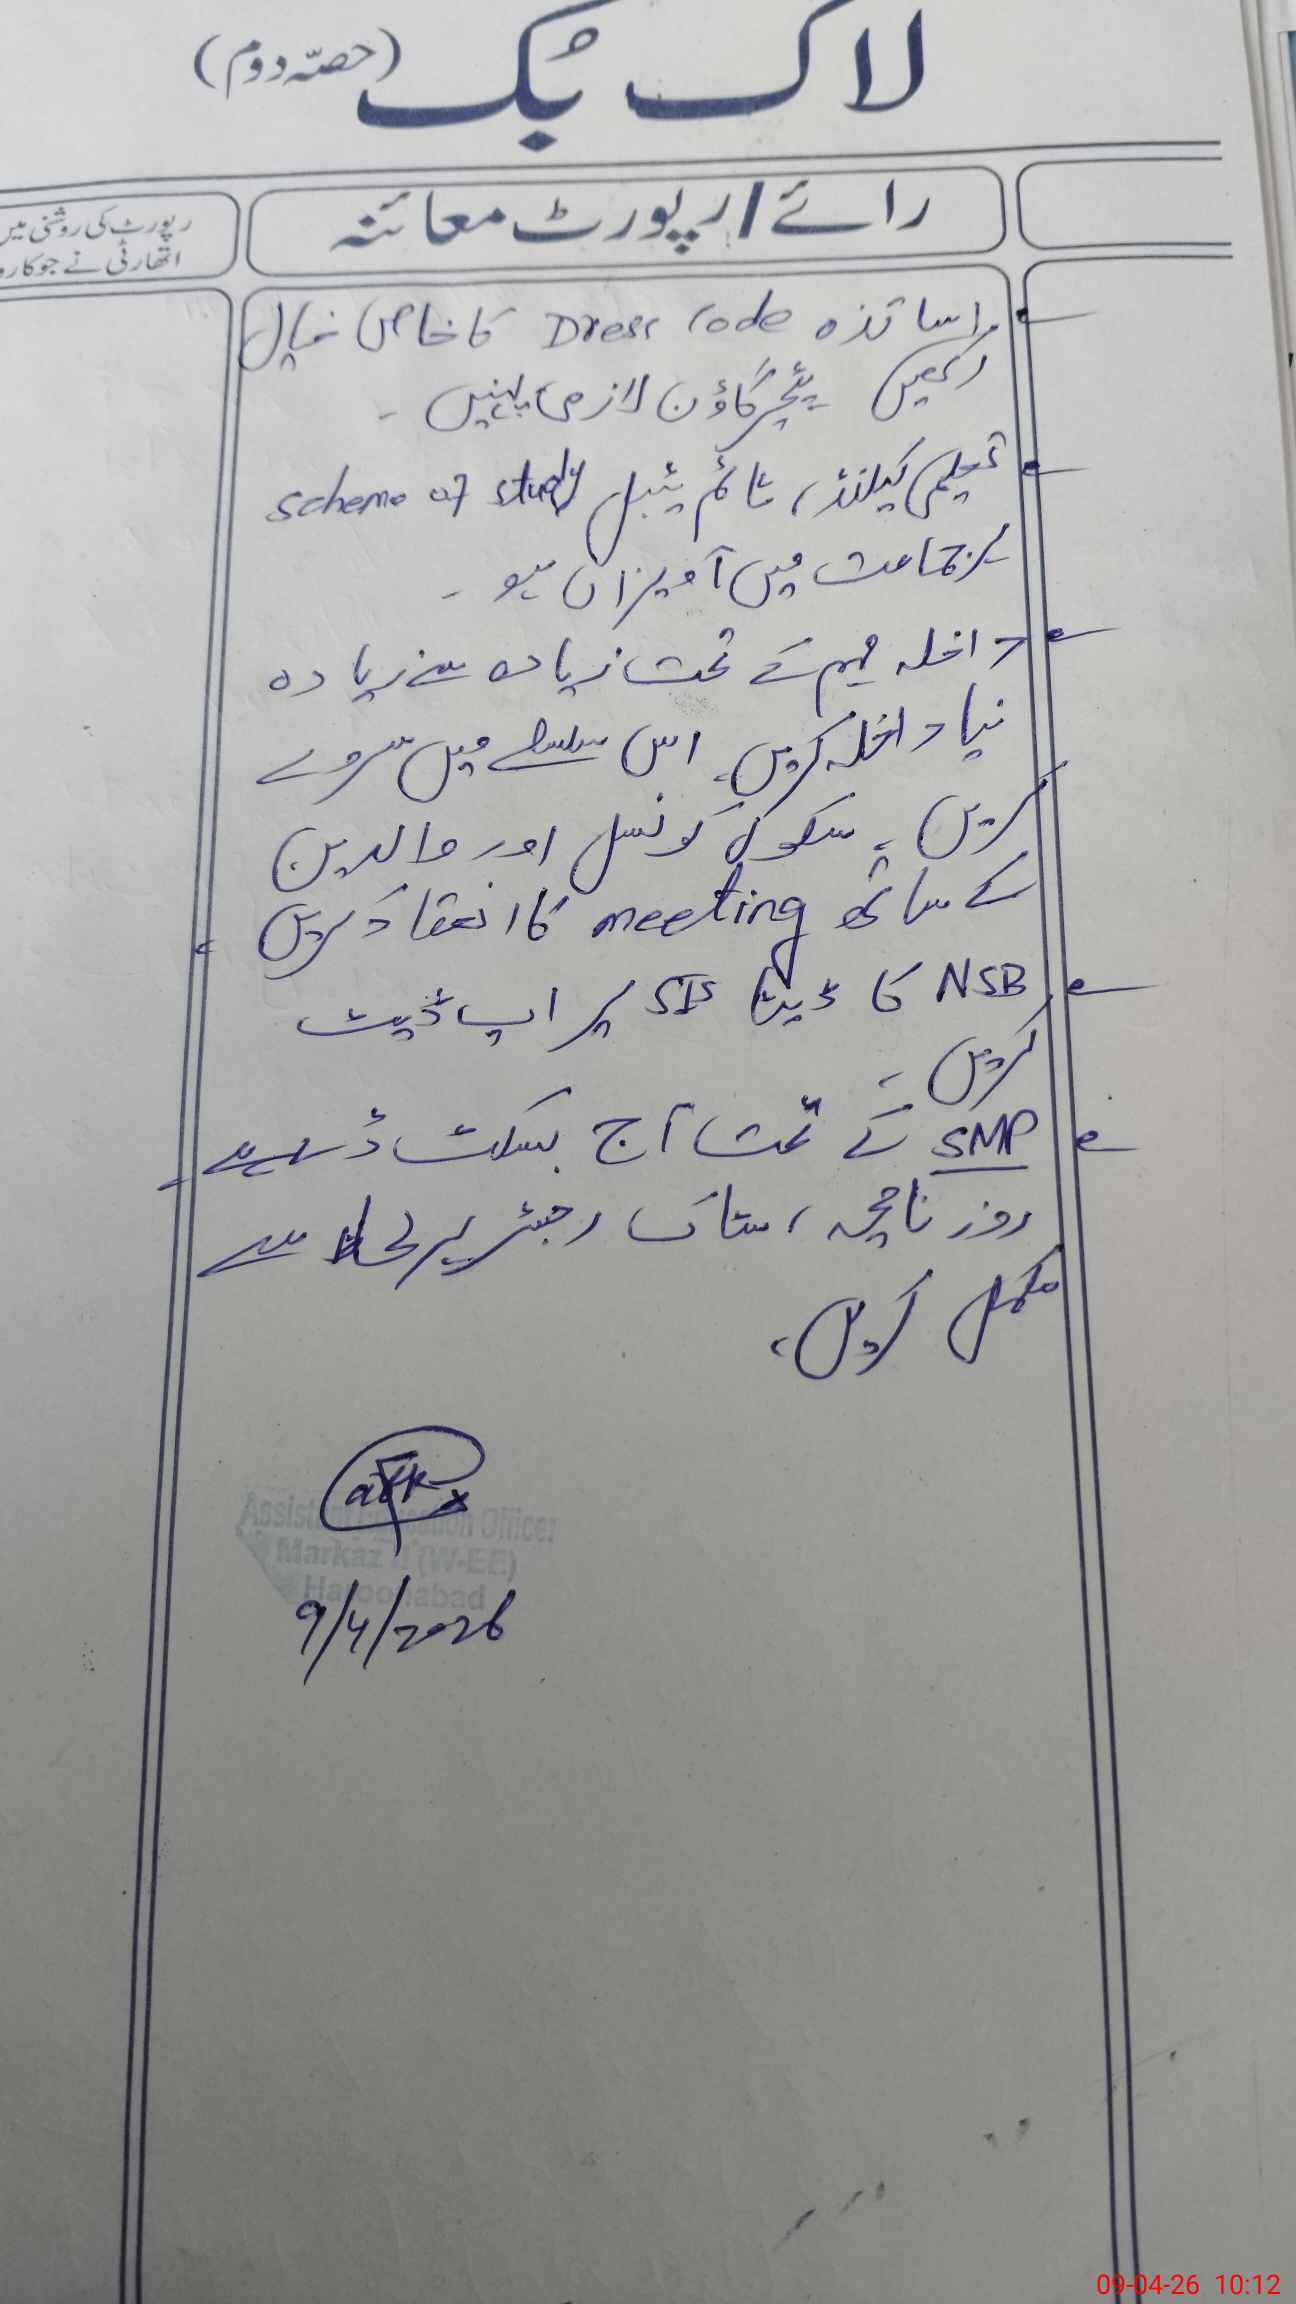 لاگ بک (حصّہ دوم)
رائے / رپورٹ معائنہ
رپورٹ کی روشنی میں
اتھارٹی نے جو کارو
اساتذہ Dress Code کا خاص خیال
رکھیں ٹیچر گاؤن لازمی پہنیں ۔
تعلیمی کیلنڈر، ٹائم ٹیبل Scheme of study
ہر جماعت میں آویزاں ہو ۔
داخلہ مہم کے تحت زیادہ سے زیادہ
نیا داخلہ کریں۔ اس سلسلے میں سروے
کریں ۔ سکول کونسل اور والدین
کے ساتھ meeting کا انعقاد کریں ۔
NSB کا ڈیٹا SIS پر اپ ڈیٹ
کریں ۔
SMP کے تحت آج بسکٹ ڈے ہے ۔
روزنامچہ ، سٹاک رجسٹر ہر لحاظ سے
مکمل کریں ۔
Assistant Education Officer
Markaz (W-EE)
Haroonabad
9/4/2026
09-04-26 10:12